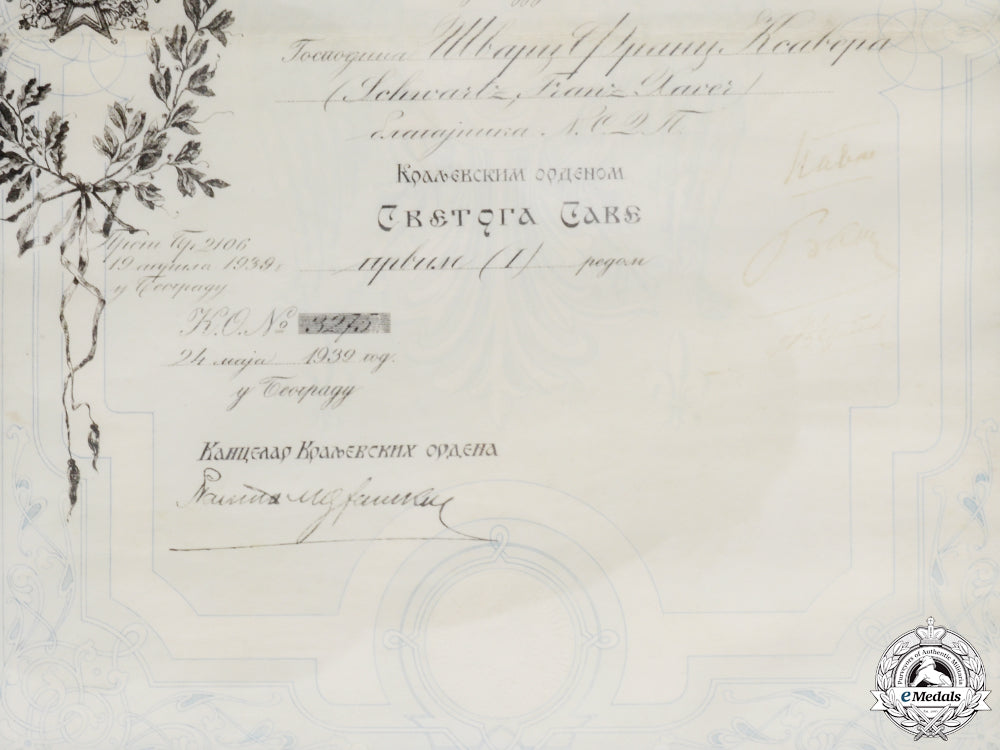 Господина Шварц Франц Ксавера
(Schwartz, Franz Xaver)
благајника Н.С.Д.П.
Краљевским орденом
Светога Саве
првим (I) редом
Бр. 2106
19 априла 1939 г.
у Београду
К.О. № 3275
24 маја 1939 год.
у Београду
Канцелар Краљевских ордена
Purveyors of Authentic Militaria
eMedals